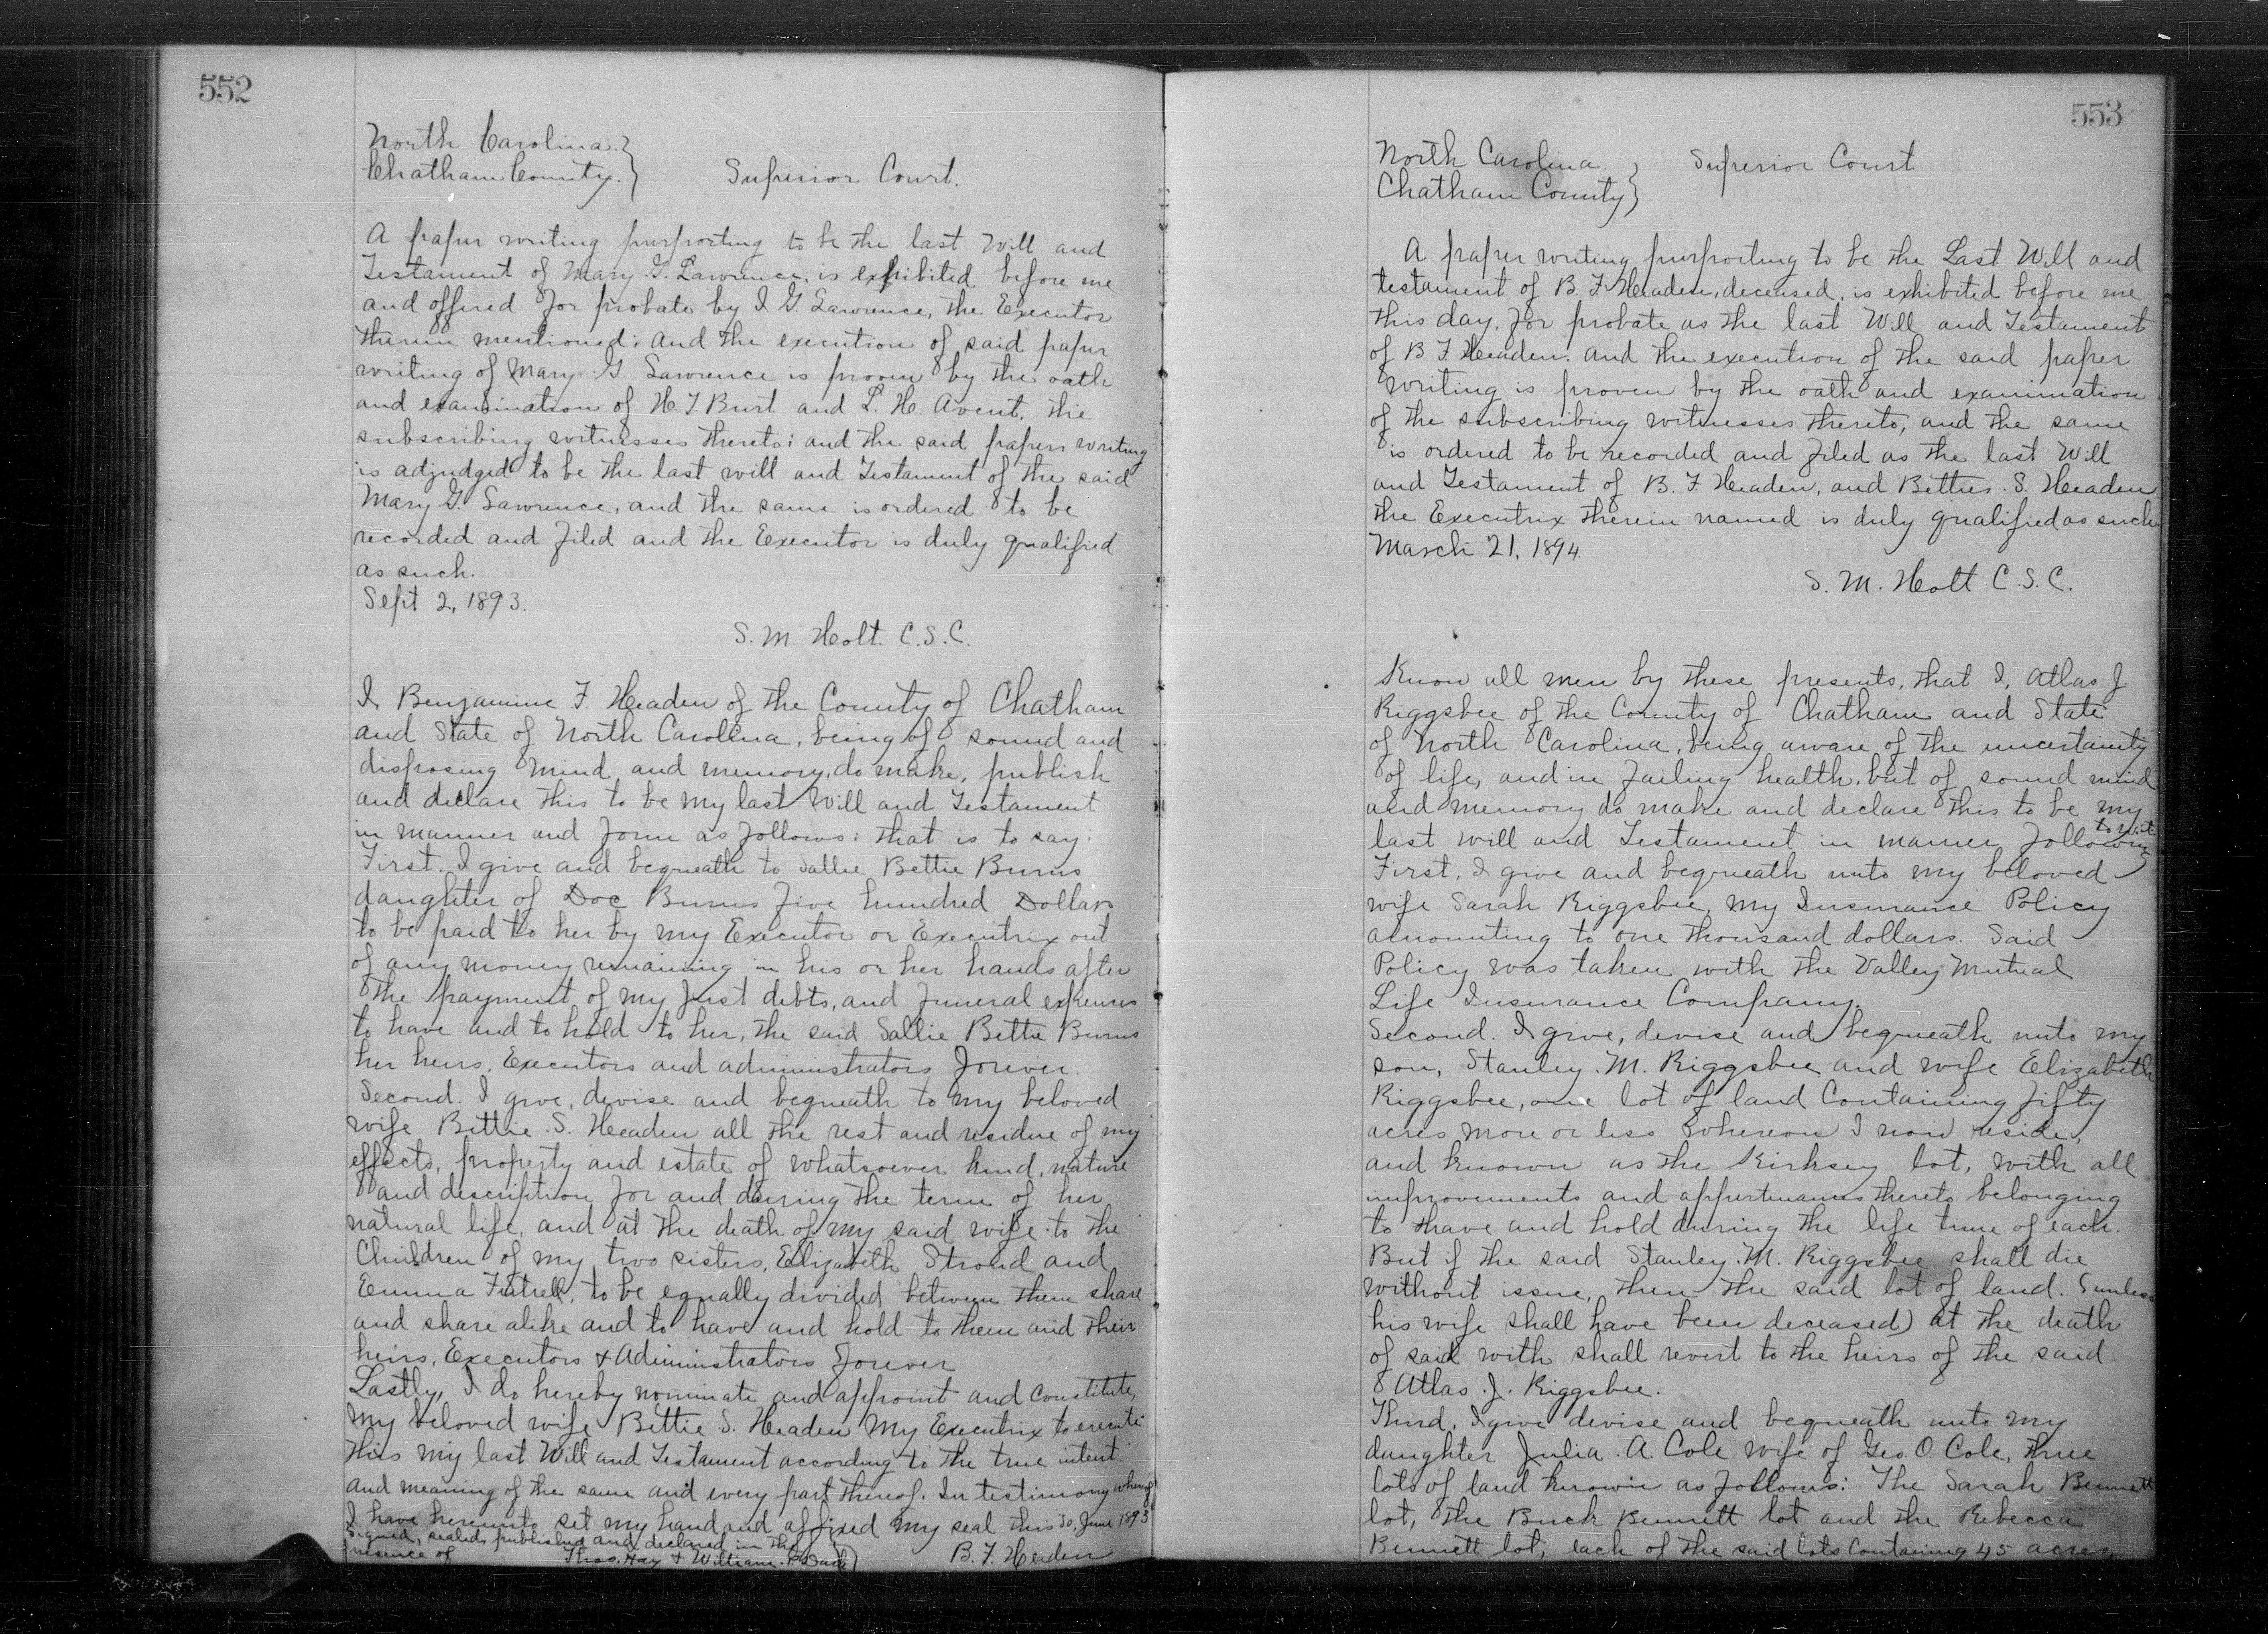 552
North Carolina }
Chatham County. } Superior Court.
A paper writing purporting to be the last Will and
Testament of Mary G. Lawrence, is exhibited before me
and offered for probate by I G. Lawrence, the Executor
therein mentioned: And the execution of said paper
writing of Mary G. Lawrence is proven by the oath
and examination of H. T. Burt and L. H. Avent, the
subscribing witnesses thereto: and the said papers writing
is adjudged to be the last will and Testament of the said
Mary G. Lawrence, and the same is ordered to be
recorded and filed and the Executor is duly qualified
as such.
Sept 2, 1893.
S. M. Holt. C. S. C.
I Benjamine F. Headen of the County of Chatham
and State of North Carolina, being of sound and
disposing mind, and memory, do make, publish
and declare this to be my last Will and Testament
in manner and form as follows: that is to say:
First. I give and bequeath to Sallie Bettie Burns
daughter of Doc Burns five hundred Dollars
to be paid to her by my Executor or Executrix out
of any money remaining in his or her hands after
the payment of my just debts, and funeral expenses
to have and to hold to her, the said Sallie Bettie Burns
her heirs, Executors and administrators forever.
Second. I give, devise and bequeath to my beloved
wife Bettie S. Headen all the rest and residue of my
effects, property and estate of whatsoever kind, nature
and description for and during the term of her
natural life, and at the death of my said wife to the
Children of my two sisters, Elizabeth Stroud and
Emma Futrell, to be equally divided between them share
and share alike and to have and hold to them and their
heirs, Executors & Administrators forever
Lastly, I do hereby nominate and appoint and constitute,
my beloved wife Bettie S. Headen my Executrix to execute
this my last Will and Testament according to the true intent
and meaning of the same and every part thereof. In testimony whereof
I have hereunto set my hand and affixed my seal this 30, June 1893
Signed, sealed, published and declared in the
presence of Thos. Hay & William } B. F. Headen
553
North Carolina }
Chatham County } Superior Court
A paper writing purporting to be the Last Will and
testament of B. F Headen, deceased, is exhibited before me
this day, for probate as the last Will and Testament
of B F Headen. and the execution of the said paper
writing is proven by the oath and examination
of the subscribing witnesses thereto, and the same
is ordered to be recorded and filed as the last Will
and Testament of B. F. Headen, and Betties S. Headen
the Executrix therein named is duly qualified as such
March 21, 1894
S. M. Holt C. S. C.
Know all men by these presents, that I, Atlas J
Riggsbee of the County of Chatham and State
of North Carolina, being aware of the uncertainty
of life, and in failing health, but of sound mind
and memory do make and declare this to be my
last will and Testament in manner following to wit
First, I give and bequeath unto my beloved
wife Sarah Riggsbee, my Insurance Policy
amounting to one thousand dollars. Said
Policy was taken with the Valley Mutual
Life Insurance Company.
Second. I give, devise and bequeath unto my
son, Stanley. M. Riggsbee and wife Elizabeth
Riggsbee, one lot of land Containing fifty
acres more or less whereon I now reside,
and known as the Kirksey lot, with all
improvements and appurtenances thereto belonging
to have and hold during the life time of each.
But if the said Stanley. M. Riggsbee shall die
without issue, then the said lot of land. (unless
his wife shall have been deceased) at the death
of said with shall revert to the heirs of the said
Atlas. J. Riggsbee.
Third, I give devise and bequeath unto my
daughter Julia. A. Cole wife of Geo. O. Cole, three
lots of land known as follows: The Sarah Bennett
lot, the Buck Bennett lot and the Rebecca
Bennett lot, each of the said lots containing 45 acres,